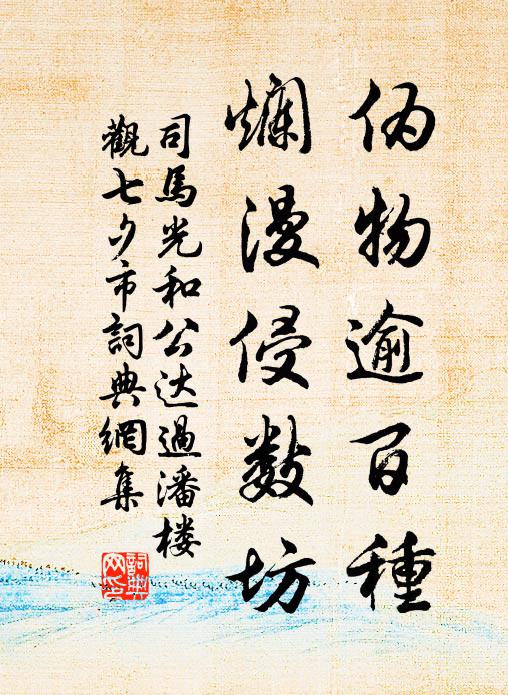 伪物逾百種
爛漫侵数坊
司馬光和公达過潘楼
觀七夕市詞典網集
詞典网